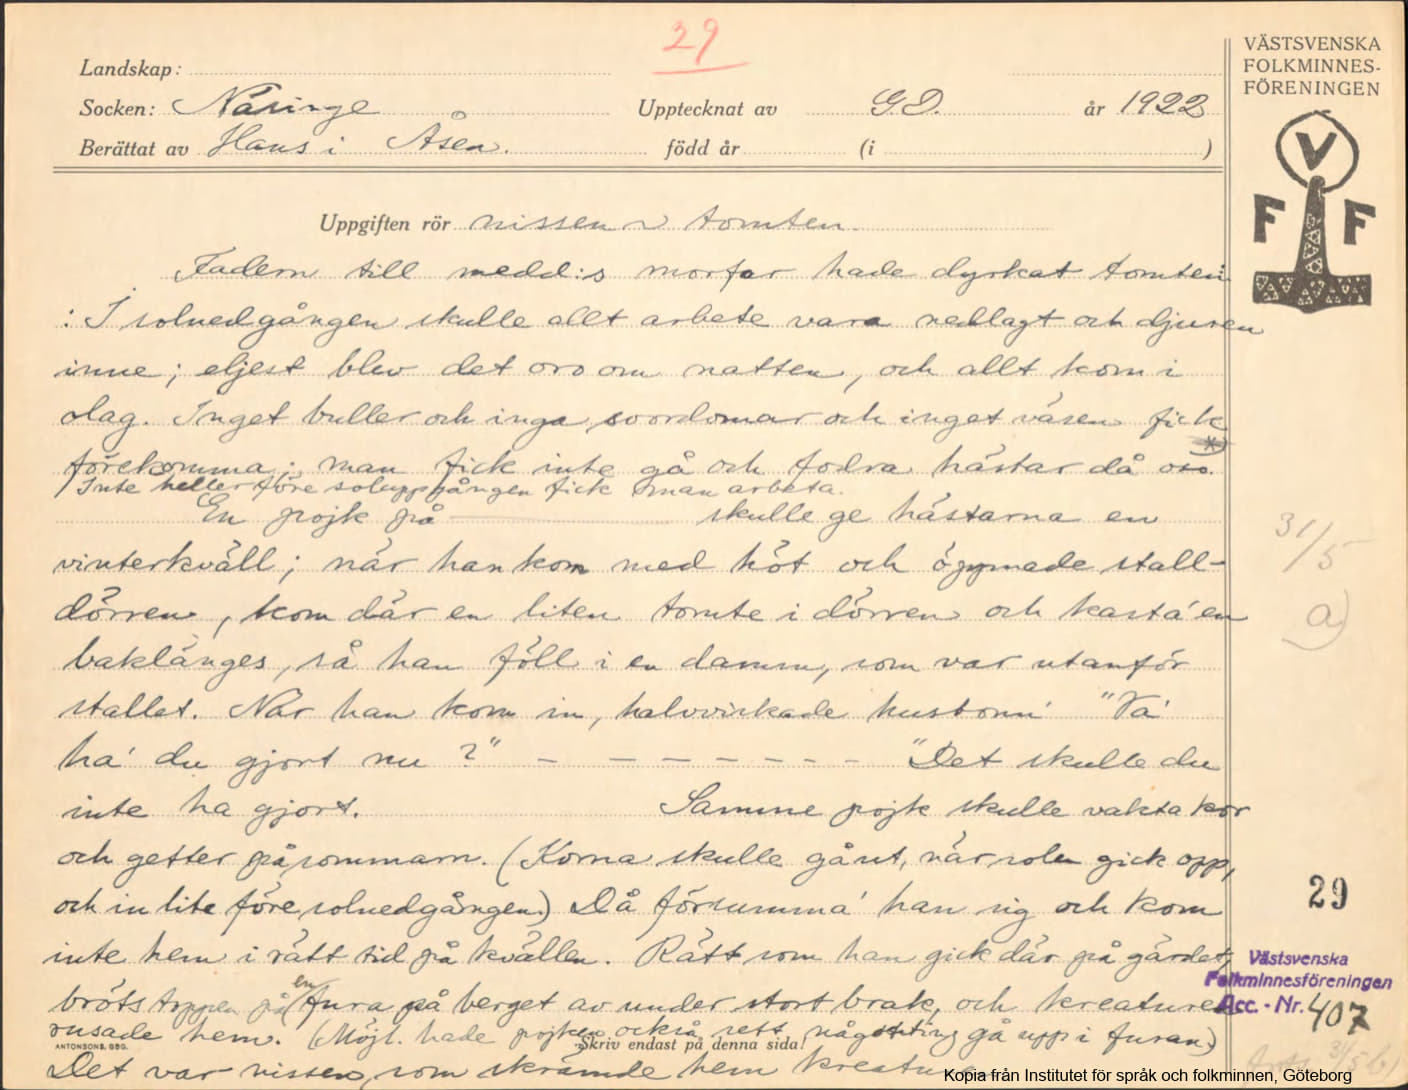 29
Landskap:
Socken: Näsinge Upptecknat av G.D. år 1922
Berättat av Hans i Åsen. född år (i )
VÄSTSVENSKA
FOLKMINNES-
FÖRENINGEN
V
F F
Uppgiften rör nissen tomten.
Fadern till medd:s morfar hade dyrkat tomten
: I solnedgången skulle allt arbete vara nedlagt och djuren
inne; eljest blev det oro om natten, och allt kom i
olag. Inget buller och inga svordomar och inget väsen fick
förekomma; man fick inte gå och fodra hästar då oso.
Inte heller före soluppgången fick man arbeta.
En pojk på skulle ge hästarna en
vinterkväll; när han kom med höt och öppnade stall-
dörren, kom där en liten tomte i dörren och kasta' en
baklänges, så han föll i en damm, som var utanför
stallet. När han kom in, halvviskade husbonn' "Va'
ha' du gjort nu?" – – – – – – – "Det skulle du
inte ha gjort. Samme pojk skulle vakta kor
och getter på sommarn. (Korna skulle gå ut, när solen gick opp,
och in lite före solnedgången.) Då försumma' han sig och kom
inte hem i rätt tid på kvällen. Rätt som han gick där på gärdet,
bröts toppen på en fura på berget av under stort brak, och kreaturen
rusade hem. (Möjl. hade pojken också sett någonting gå upp i furan.)
Det var nissen, som skrämde hem
31/5
a)
29
Västsvenska
Folkminnesföreningen
Acc.-Nr. 407
ANTONSONS, GBG.
Skriv endast på denna sida!
Kopia från Institutet för språk och folkminnen, Göteborg